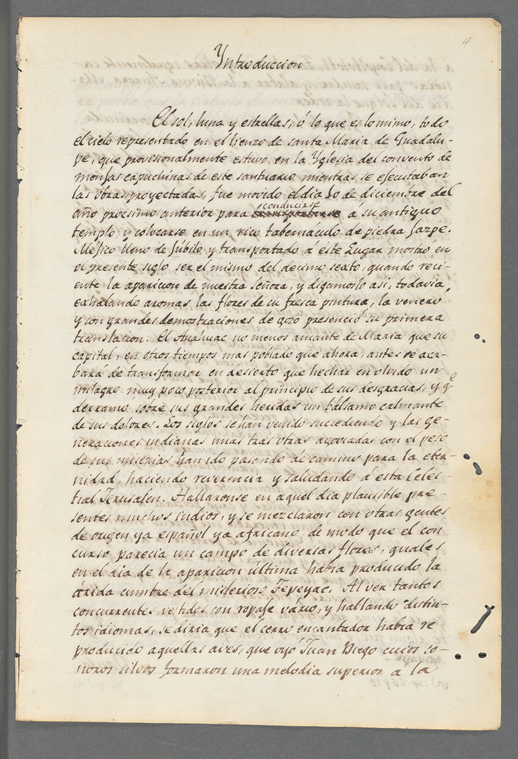 4
Yntroduccion
El sol, luna y estrellas, ó lo que es lo mimo, todo
el cielo representado en el lienzo de santa Maria de Guadalu-
pe, que provisionalmente estuvo en la Yglesia del convento de
monjas capuchinas de este santuario mientras se ejecutaban
las obras proyectadas, fue movido el dia 10 de diciembre del
año procsimo anterior para
conducirse
a su antiguo
templo y colocarse en un rico tabernaculo de piedra jaspe.
Mejico lleno de jubilo y transportado á este Lugar mostro en
el presente siglo ser el mismo del decimo secto, quando reci-
ente la aparicion de nuestra señora, y digamoslo asi, todavia,
exhalando aromas las flores de su fresca pintura, la venero
y con grandes demostraciones de gozo presenció su primera
translacion. El Anahuac no menos amante de Maria que su
capital, en otros tiempos mas poblado que ahora, antes se aca-
bará de transformar en desierto que hechar en olvido un
milagro muy poco posterior al principio de sus desgracias, y qe
derramo sobre sus grandes heridas un balsamo calmante
de sus dolores. Los siglos se han venido sucediendo y las ge-
neraciones indianas unas tras otras agoviadas con el peso
de sus miserias han ido pasando de camino para la eter-
nidad, haciendo reverencia y saludando á esta Celes-
tial Jerusalen. Hallaronse en aquel dia plausible pre-
sentes muchos indios, y se mezclaron con otras gentes
de origen ya español ya africano, de modo que el con
curso parecia un campo de diversas flores, quales
en el dia de la aparicion última habia producido la
arida cumbre del misterioso Tepeyac. Al ver tantos
concurrentes vestidos con ropaje vario, y hablando distin-
tos idiomas, se diria que el cerro encantador habia re
producido aquellas aves, que oyó Juan Diego cuios so-
noros silvos formaron una melodia superior a la